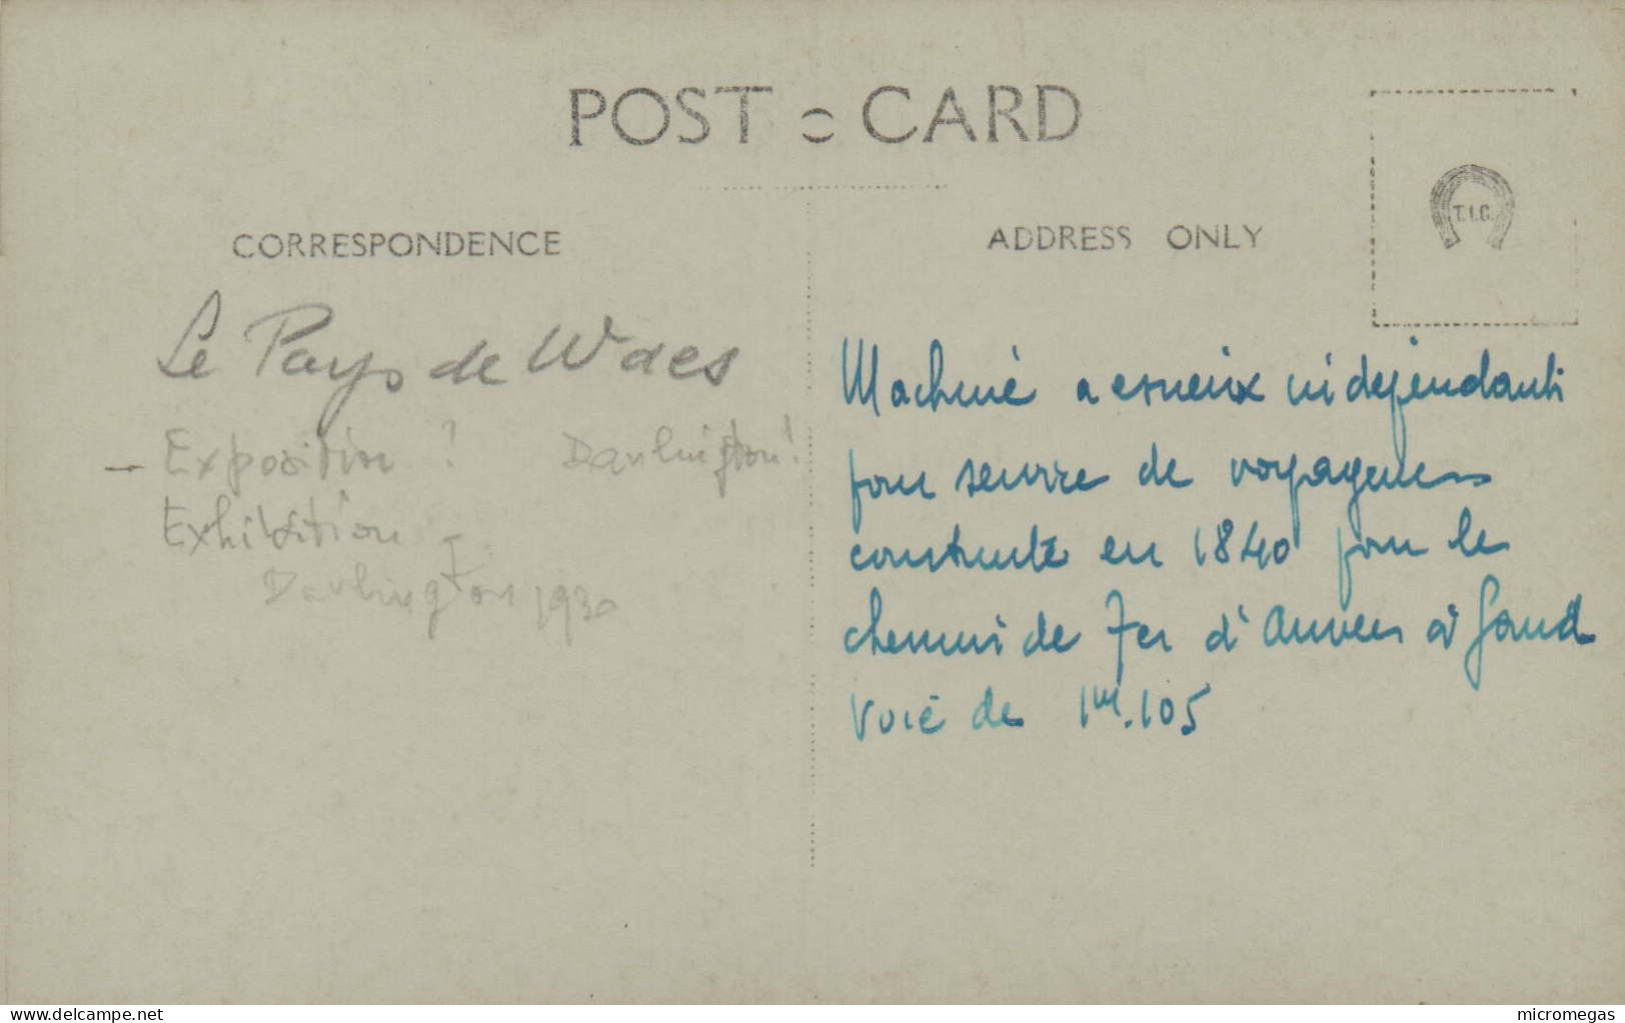 POST CARD
CORRESPONDENCE
ADDRESS ONLY
T.I.C.
Le Pays de Waes
- Exposition ? Darlington !
Exhibition
Darlington 1930
Machine a essieux independants
pour service de voyageurs
construite en 1840 pour le
chemin de fer d'Anvers à Gand
voie de 1m.105
www.delcampe.net
micromegas